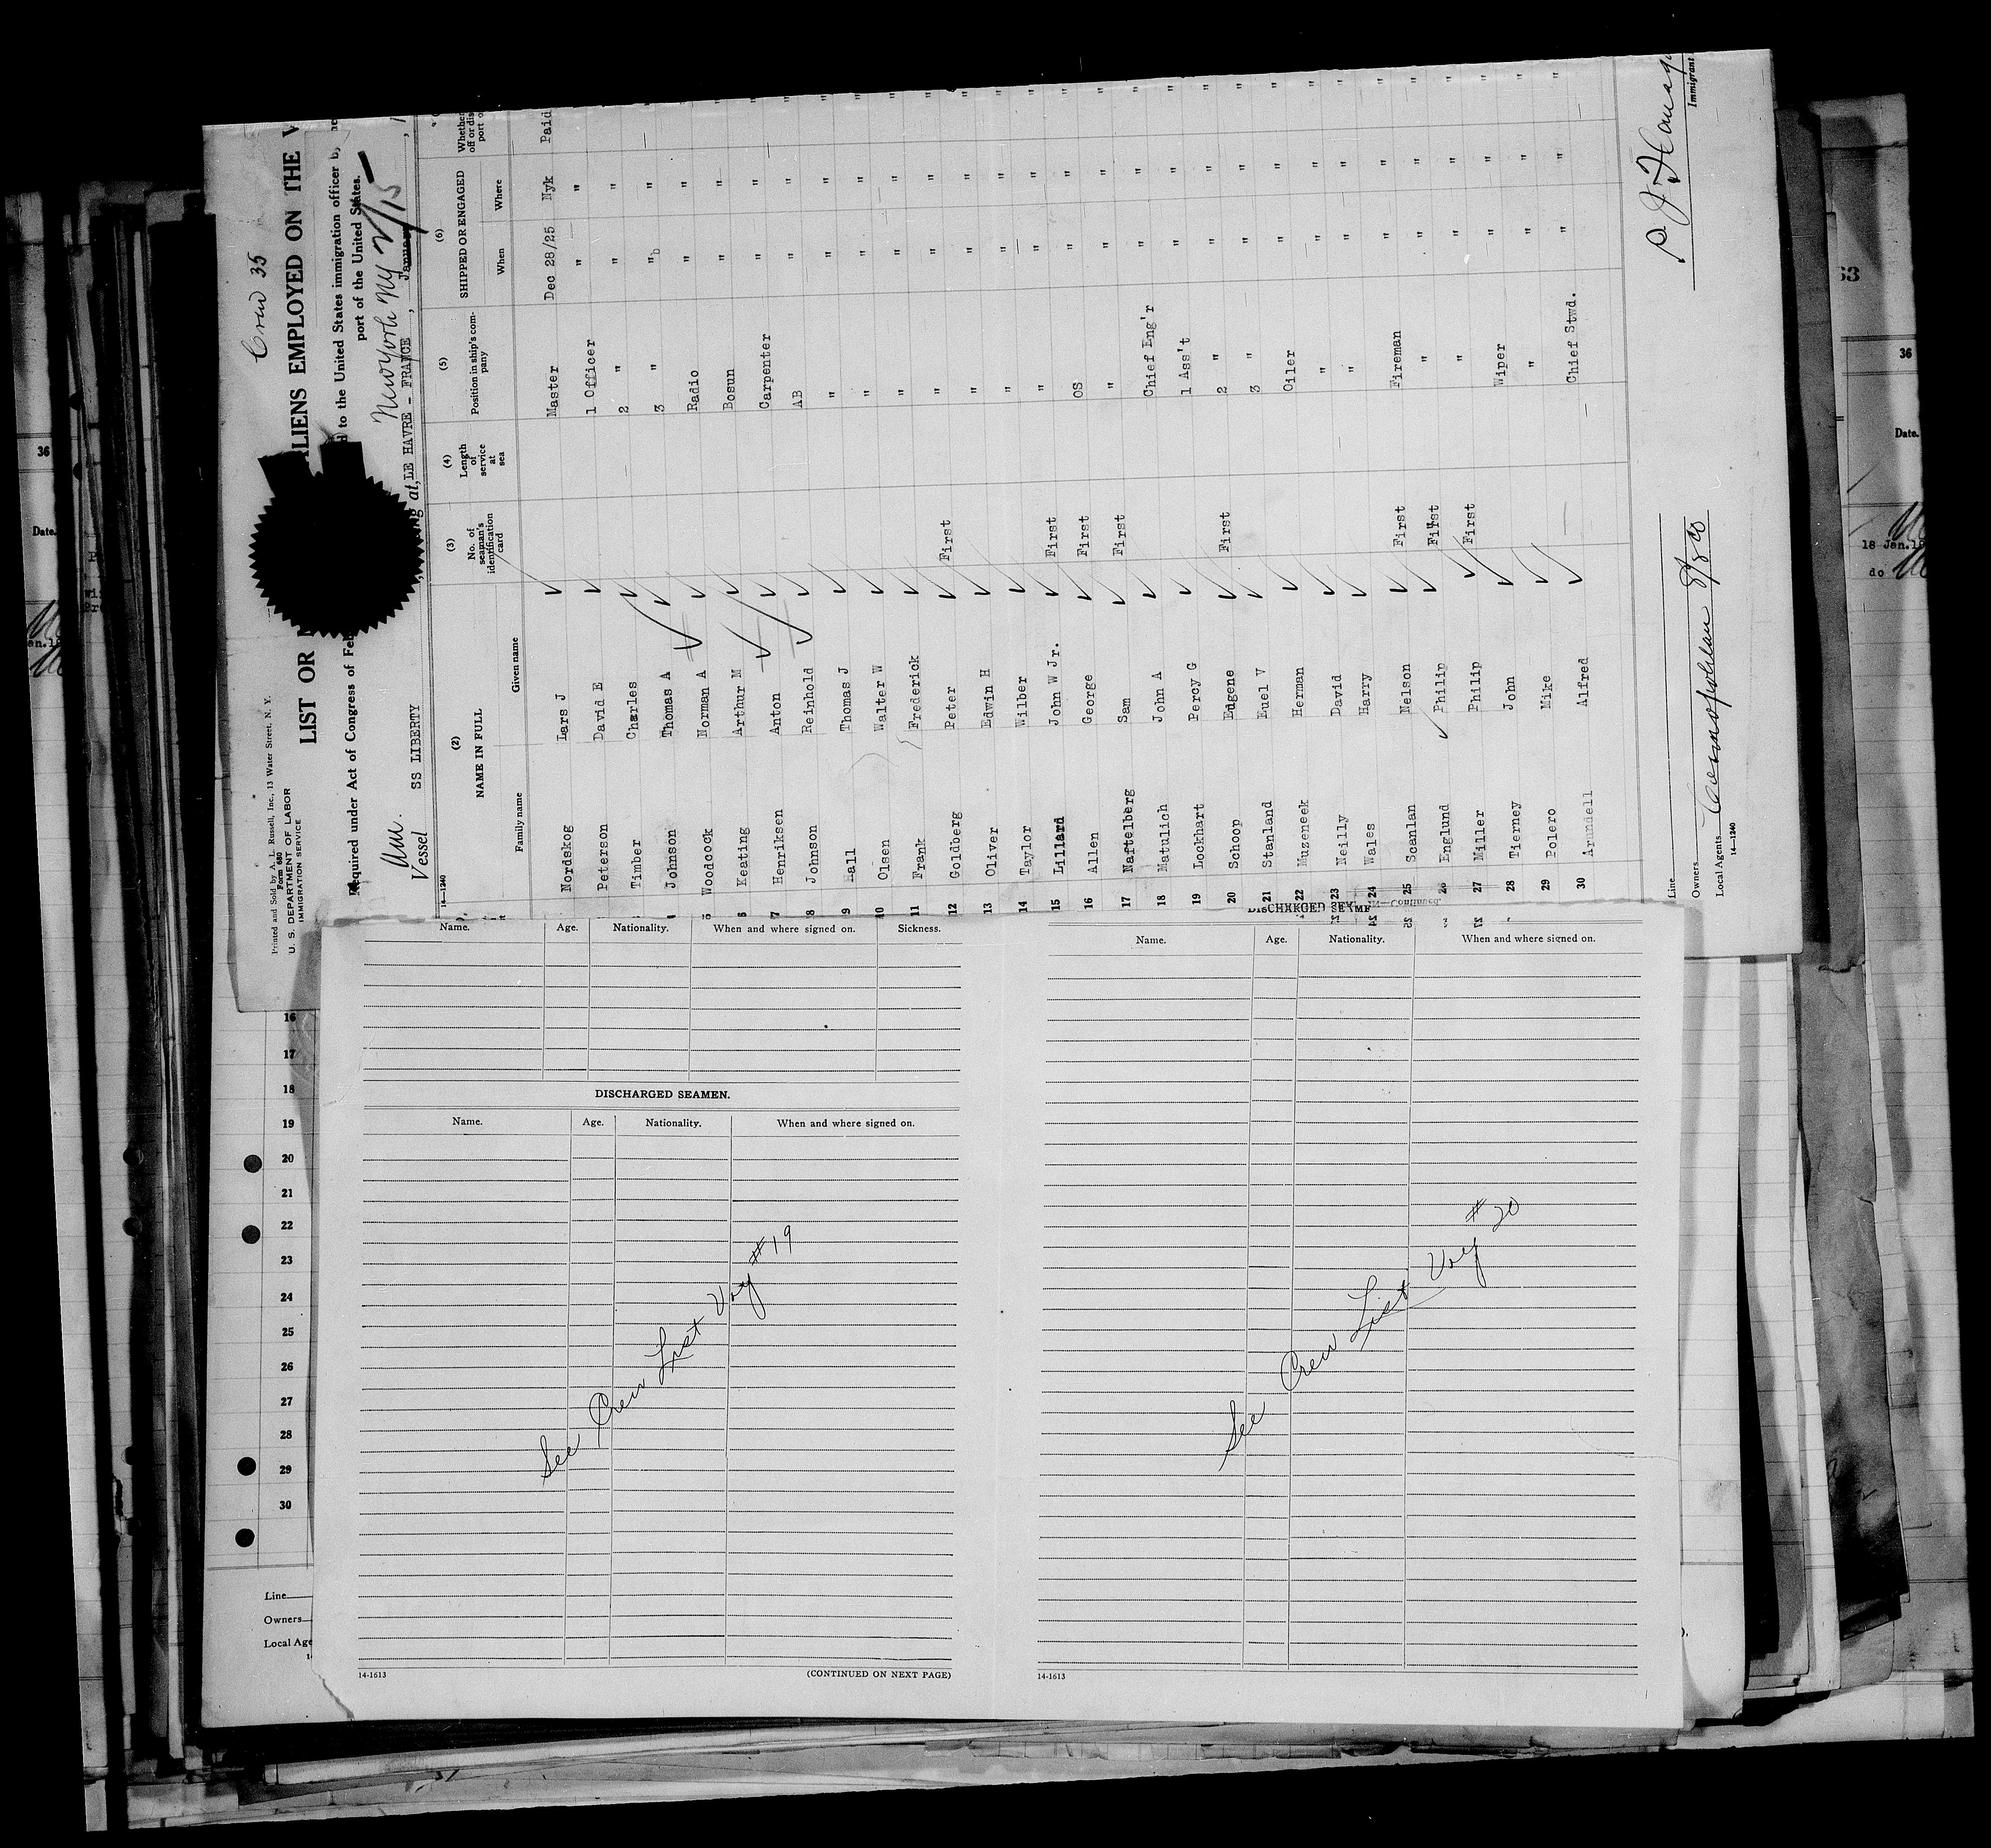 Crew 35
Printed and Sold by A. L. Russell, Inc., 13 Water Street, N. Y.
Form 680
U. S. DEPARTMENT OF LABOR
IMMIGRATION SERVICE
LIST OR
ALIENS EMPLOYED ON THE V
Required under Act of Congress of Feb
d to the United States immigration officer b
port of the United States.
New York NY
Vessel SS LIBERTY
at, LE HAVRE - FRANCE , January
14-1240
(2) NAME IN FULL
Family name Given name
(3) No. of seaman's identification card
(4) Length of service at sea
(5) Position in ship's company
(6) SHIPPED OR ENGAGED
When Where
Nordskog Lars J Master Dec 28/25 Nyk Paid
Peterson David E 1 Officer " " "
Timber Charles 2 " " " "
4 Johnson Thomas A 3 " " " "
5 Woodcock Norman A Radio " " "
6 Keating Arthur M Bosun " " "
7 Henriksen Anton Carpenter " " "
8 Johnson Reinhold AB " " "
9 Hall Thomas J " " " "
10 Olsen Walter W " " " "
11 Frank Frederick " " " "
12 Goldberg Peter First " " " "
13 Oliver Edwin H " " " "
14 Taylor Wilber " " " "
15 Lillard John W Jr. First " " " "
16 Allen George First OS " " "
17 Naftelberg Sam First " " " "
18 Matulich John A Chief Eng'r " " "
19 Lockhart Percy G 1 Ass't " " "
20 Schoop Eugene First 2 " " " "
21 Stanland Euel V 3 " " " "
22 Muzeneek Herman Oiler " " "
23 Neilly David " " " "
24 Wales Harry " " " "
25 Scanlan Nelson First Fireman " " "
26 Englund Philip First " " " "
27 Miller Philip First " " " "
28 Tierney John Wiper " " "
29 Polero Mike " " " "
30 Arundell Alfred Chief Stwd. " " "
Line
Owners
Local Agents Cosmopolitan
14-1240
Immigrant
Name. Age. Nationality. When and where signed on. Sickness.
DISCHARGED SEAMEN.
Name. Age. Nationality. When and where signed on.
See Crew List Voy #19
14-1613
(CONTINUED ON NEXT PAGE)
Name. Age. Nationality. When and where signed on.
See Crew List Voy #20
14-1613
16
17
18
19
20
21
22
23
24
25
26
27
28
29
30
Line
Owners
Local Age
36
Date.
36
Date.
18 Jan.
do